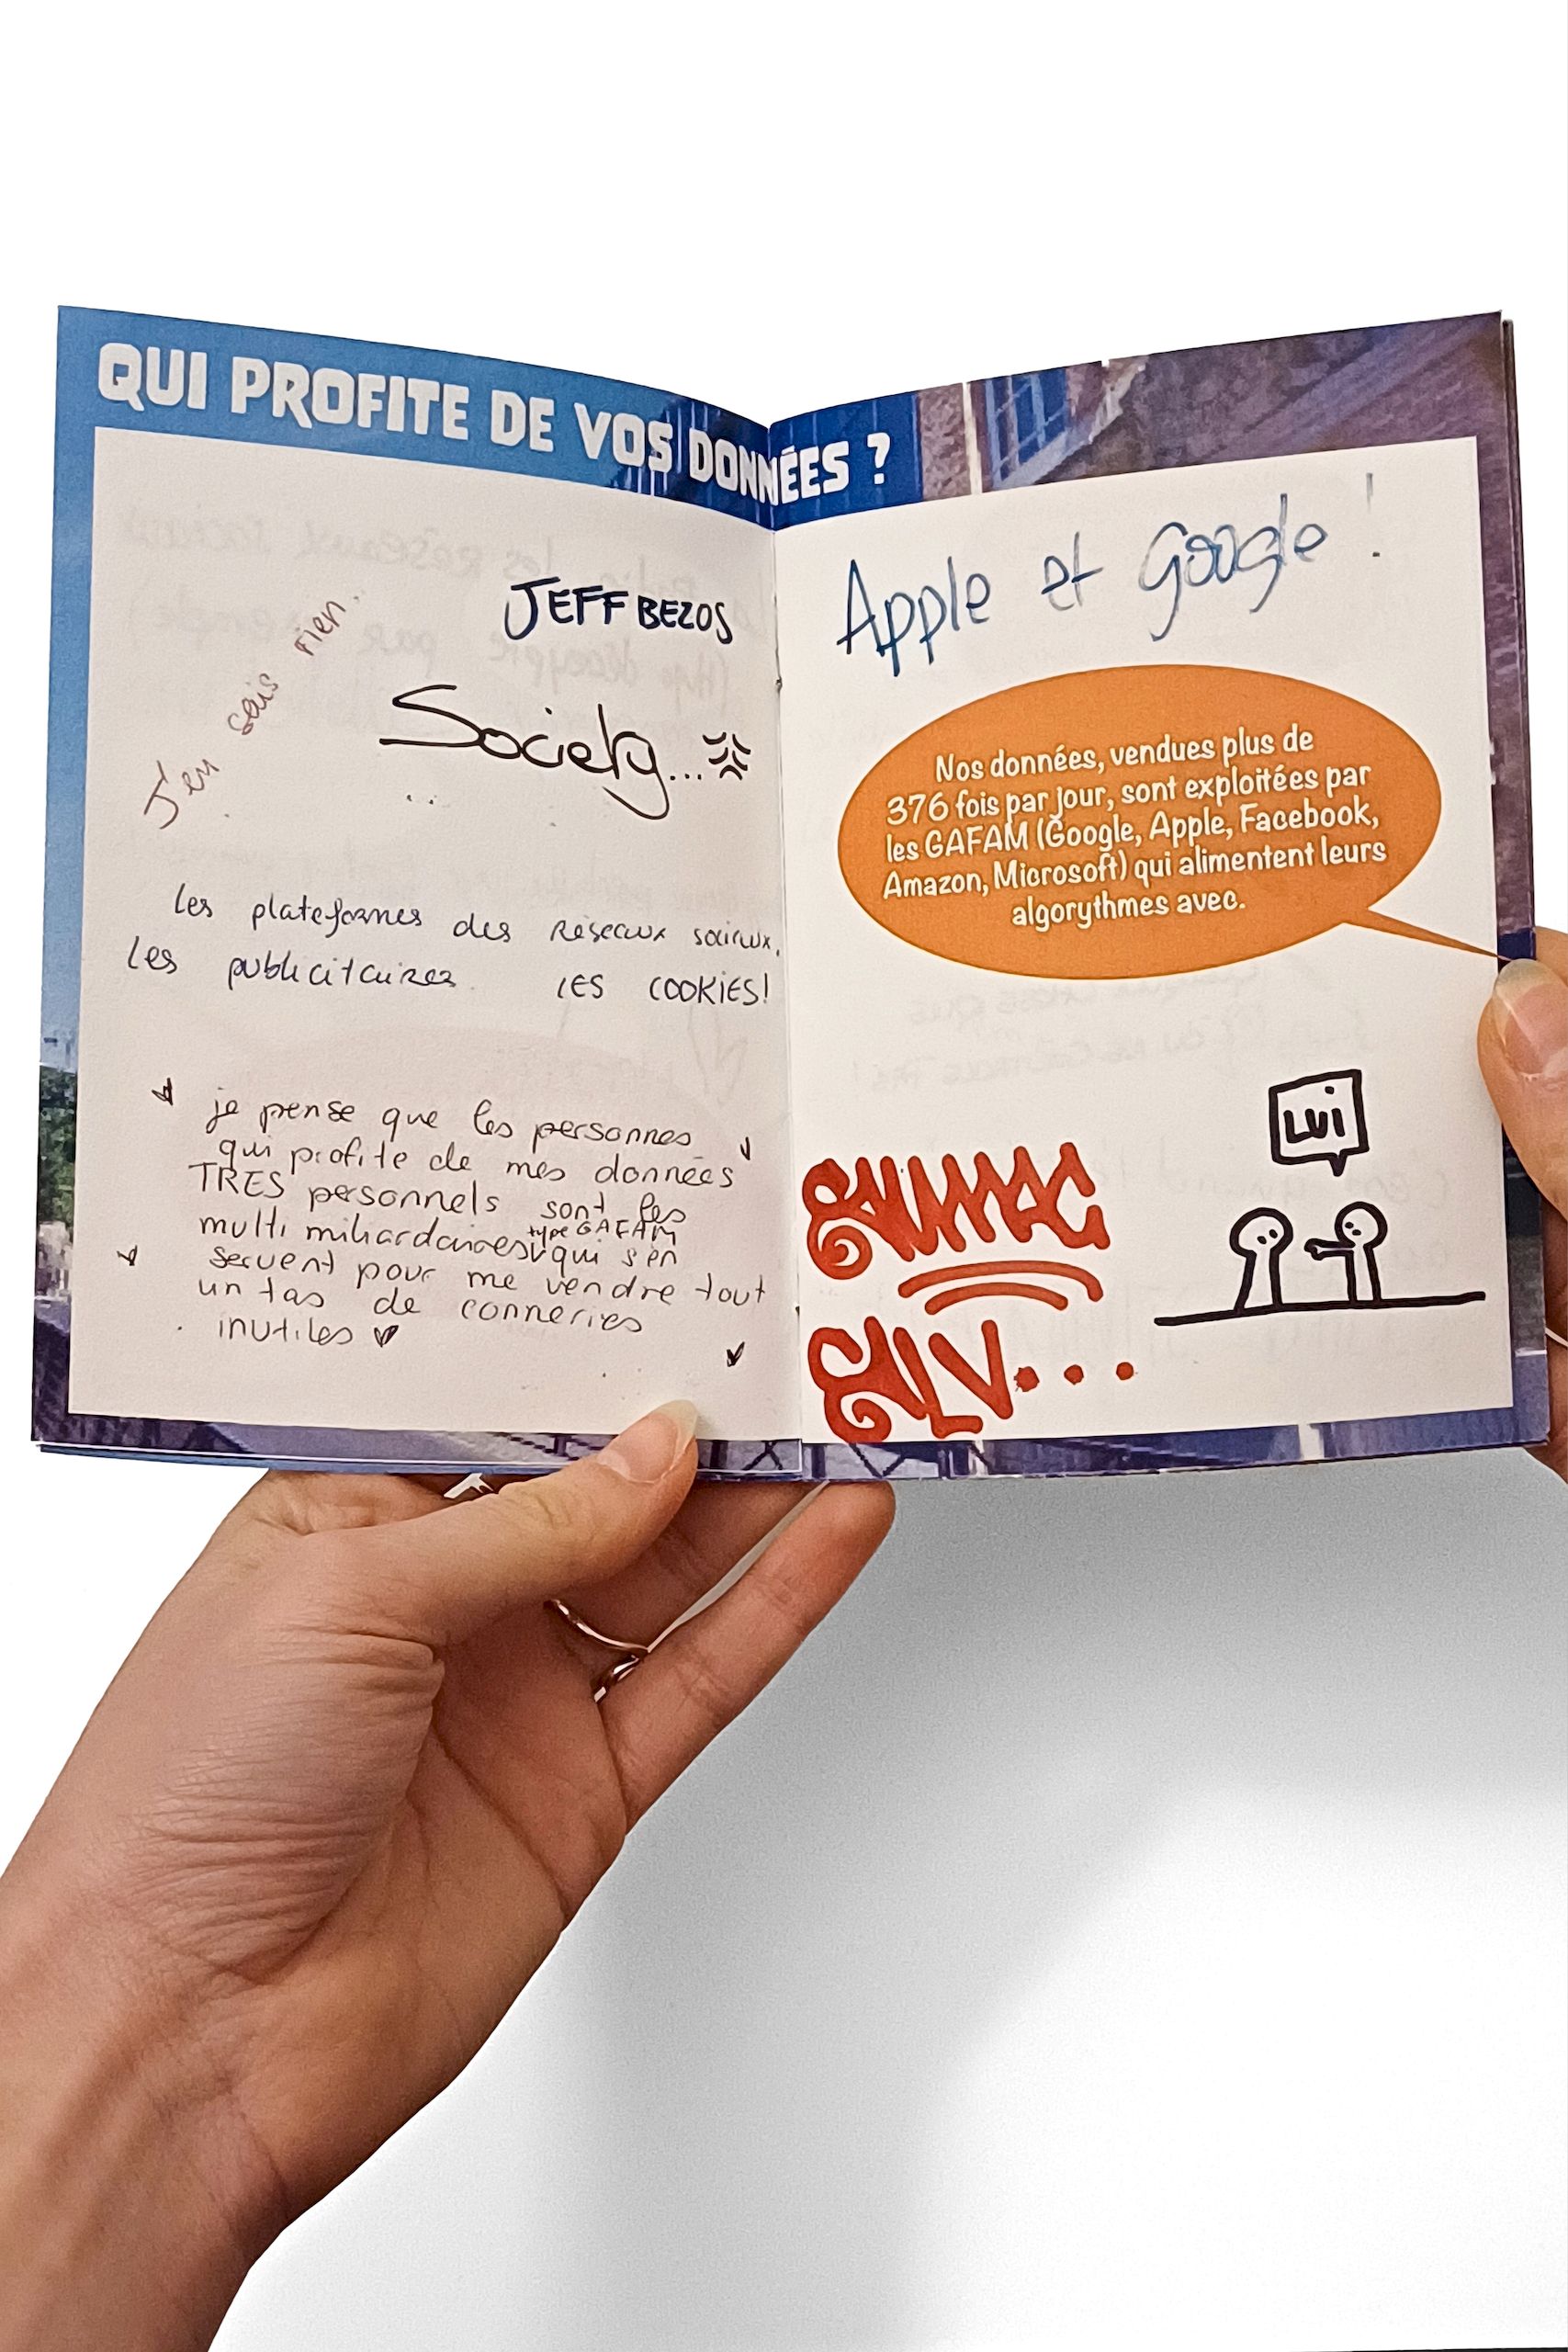 QUI PROFITE DE VOS DONNÉES ?
J'en sais rien.
JEFF BEZOS
Society...
les plateformes des réseaux sociaux.
les publicitaires. LES COOKIES!
je pense que les personnes
qui profite de mes données
TRES personnels sont les
multi miliardaires type GAFAM qui s'en
servent pour me vendre tout
un tas de conneries
inutiles
Apple et Google !
Nos données, vendues plus de
376 fois par jour, sont exploitées par
les GAFAM (Google, Apple, Facebook,
Amazon, Microsoft) qui alimentent leurs
algorythmes avec.
LUi